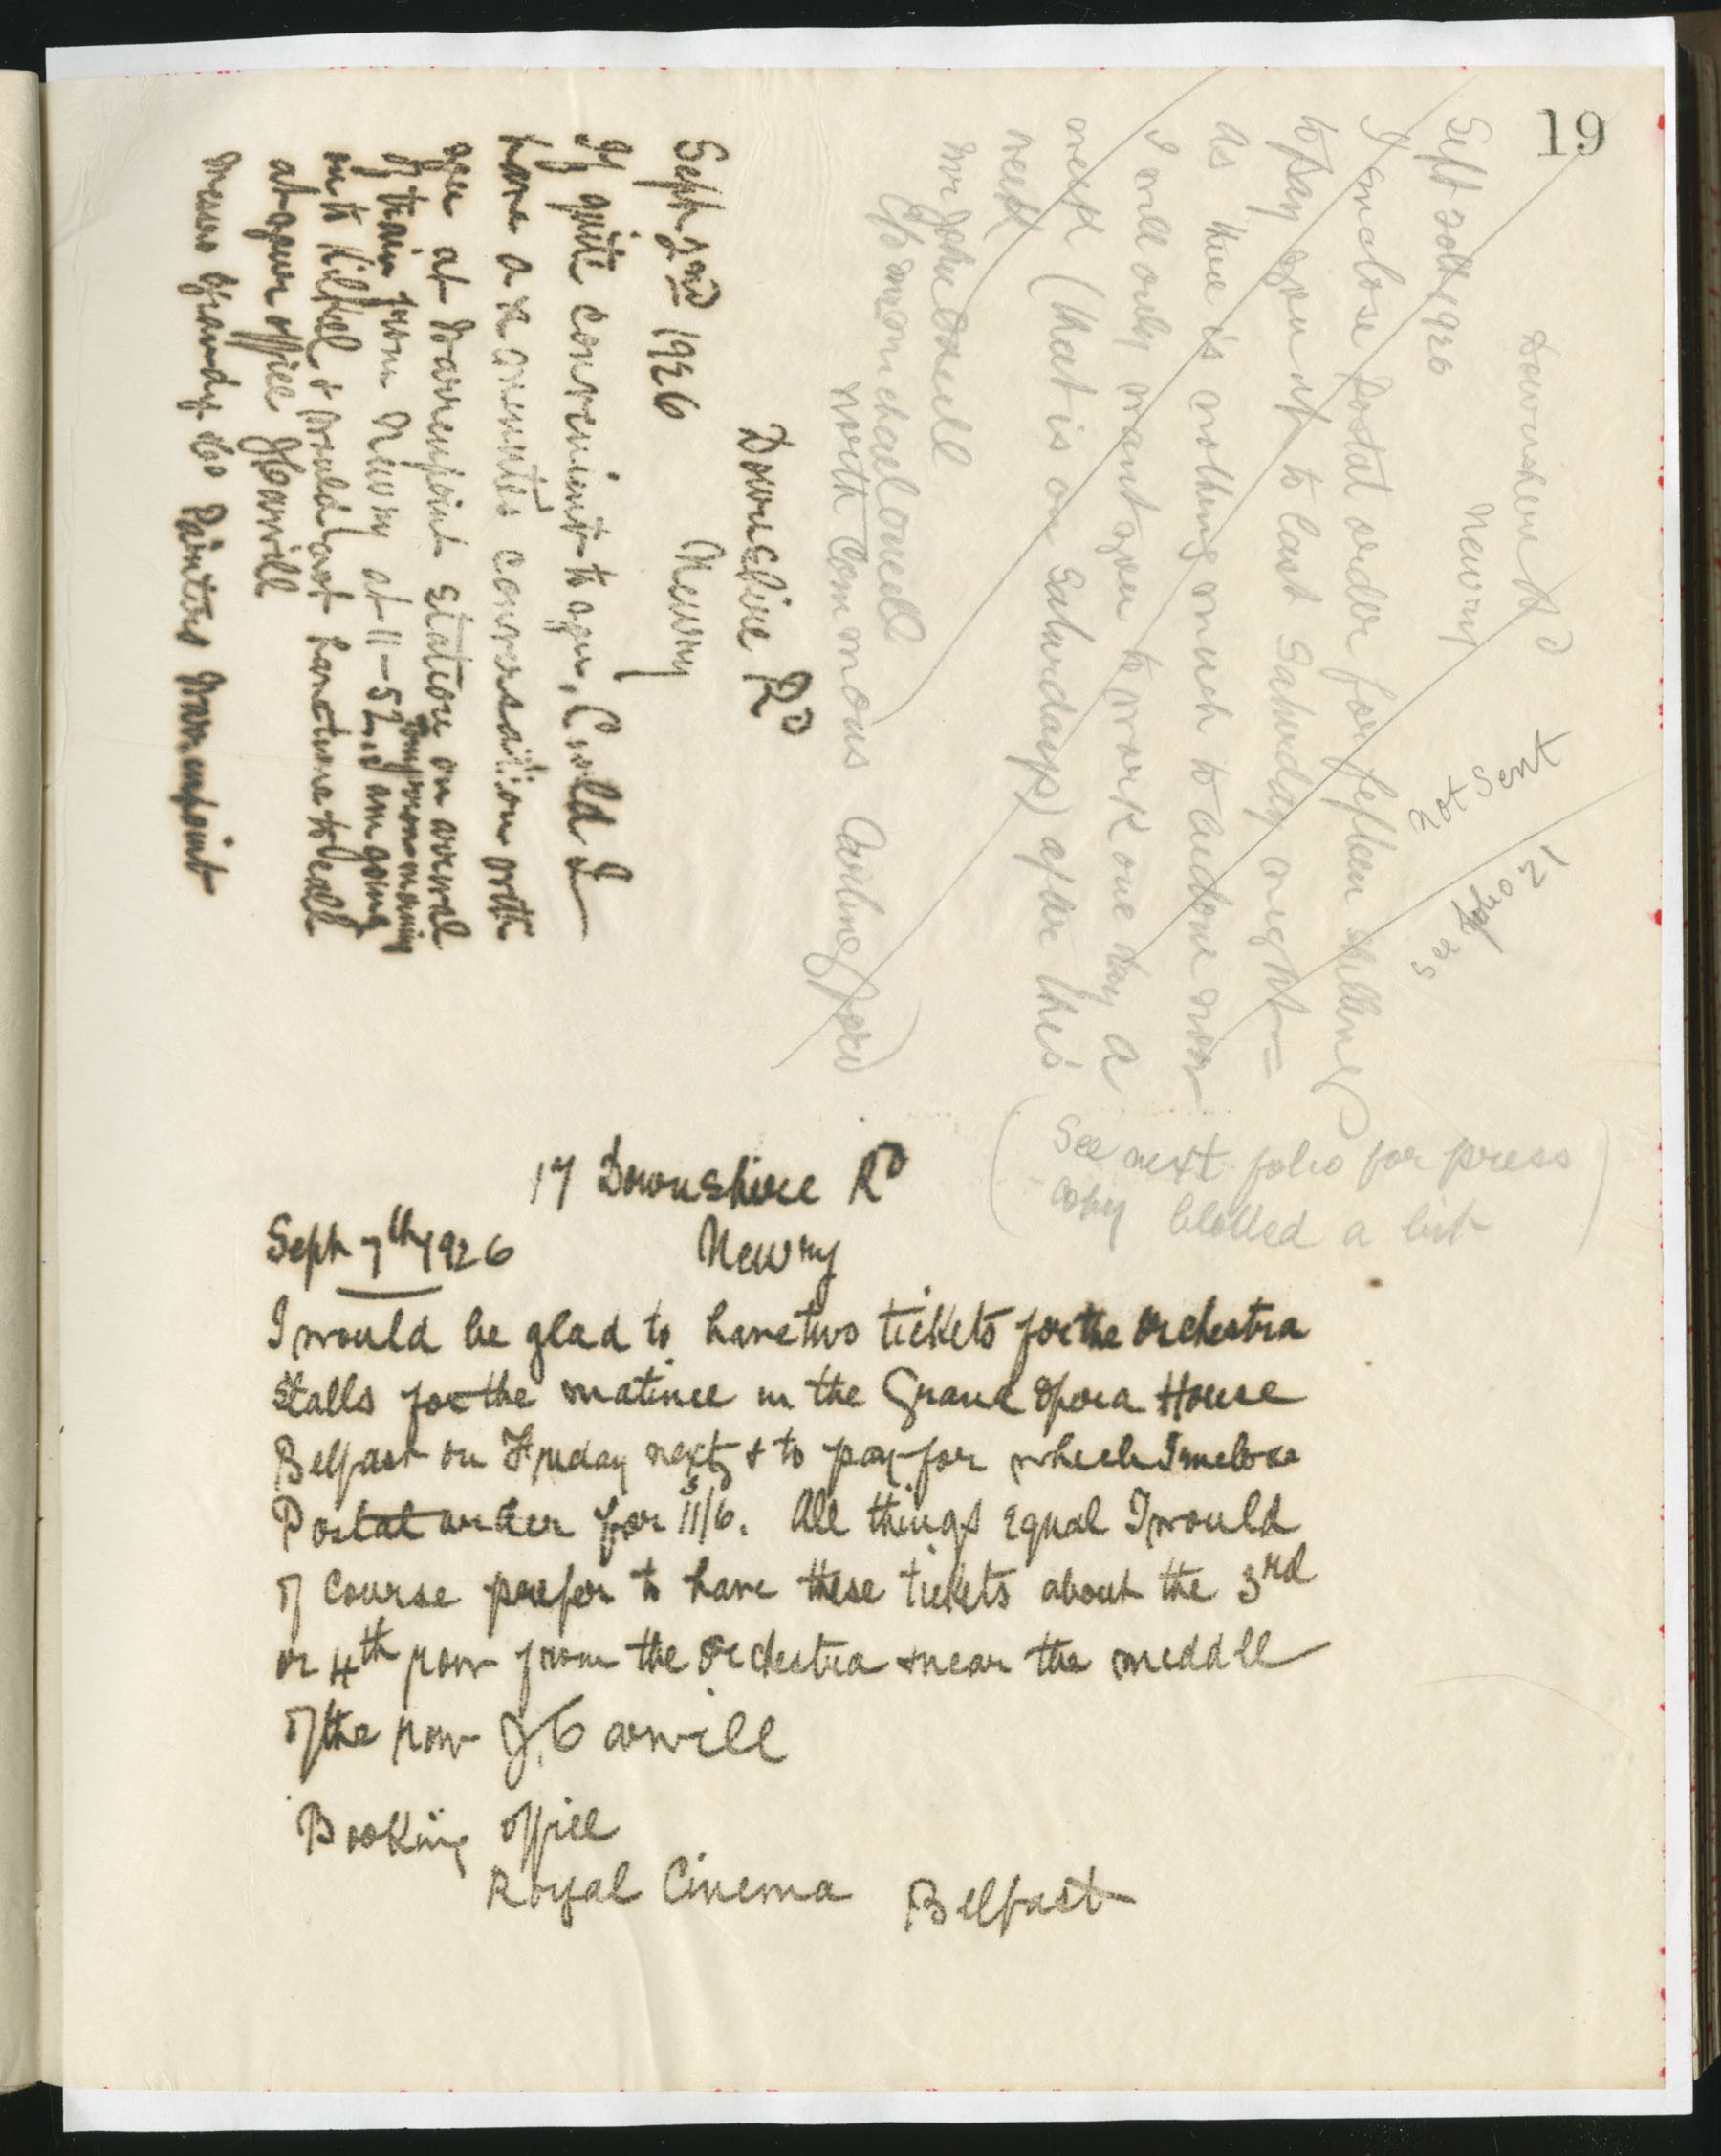 19
Downshire Rd
Newry
Sept 20th 1926
I enclose Postal order for fifteen shilling
to pay you up to last Saturday night =
As there is nothing much to be done now
I will only want you to work one day a
week (that is on Saturdays) after this
week
Mr John Oneill
C/o Mr Michael Oneill
North Commons Carlingford
not sent
See folio 21
(See next folio for press
copy blotted a bit)
Downshire Rd
Newry
Sept 2nd 1926
If quite convenient to you, Could I
have a x a minutes conversation with
you at Warrenpoint station on arrival
of train from Newry at 11-52 tomorrow morning
I am going
on to Kilkeel & would not have time to call
at your office JCarvill
Messrs Grandy & Co Painters Warrenpoint
17 Downshire Rd
Sept 7th 1926 Newry
I would be glad to have two tickets for the Orchestra
Stalls for the matinee in the Grand Opera House
Belfast on Friday next & to pay for which I enclose
Postal order for 11/6. All things equal I would
of course prefer to have these tickets about the 3rd
or 4th row from the Orchestra & near the middle
of the row J.Carvill
Booking office
Royal Cinema Belfast